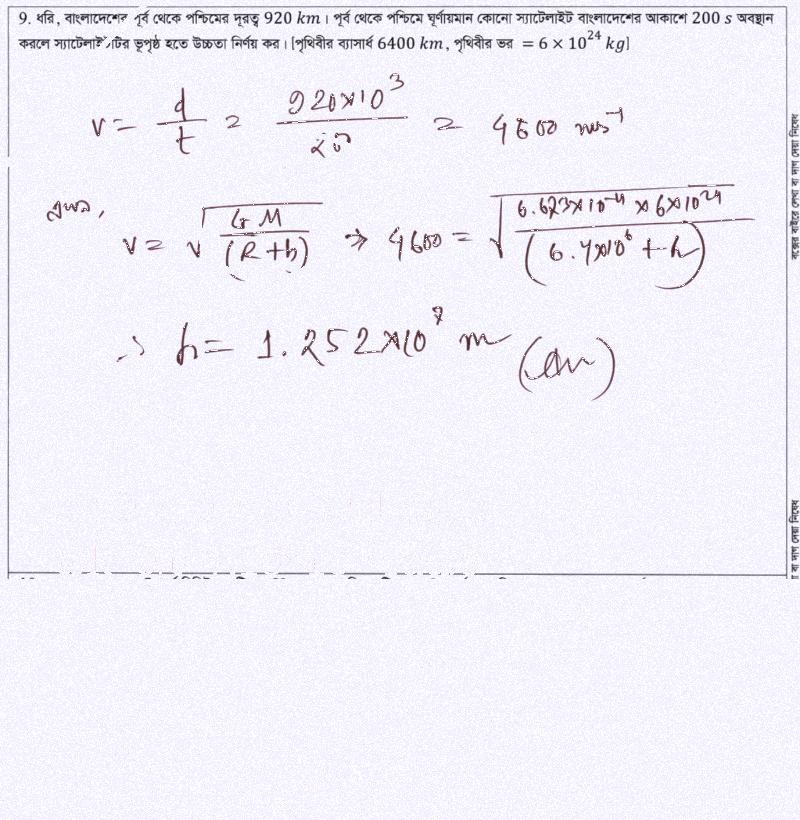 9. ধরি, বাংলাদেশের পূর্ব থেকে পশ্চিমের দূরত্ব 920 km। পূর্ব থেকে পশ্চিমে ঘূর্ণায়মান কোনো স্যাটেলাইট বাংলাদেশের আকাশে 200 s অবস্থান
করলে স্যাটেলাইটটির ভূপৃষ্ঠ হতে উচ্চতা নির্ণয় কর। [পৃথিবীর ব্যাসার্ধ 6400 km, পৃথিবীর ভর = 6 × 10^24 kg]
v = d/t = 920×10^3/200 = 4600 ms^-1
এখন,
v = √(GM/(R+h)) ⇒ 4600 = √(6.673×10^-11 × 6×10^24/(6.4×10^6 + h))
∴ h = 1.252×10^7 m (Ans)
বক্সের বাইরে লেখা বা দাগ দেয়া নিষেধ
বা দাগ দেয়া নিষেধ